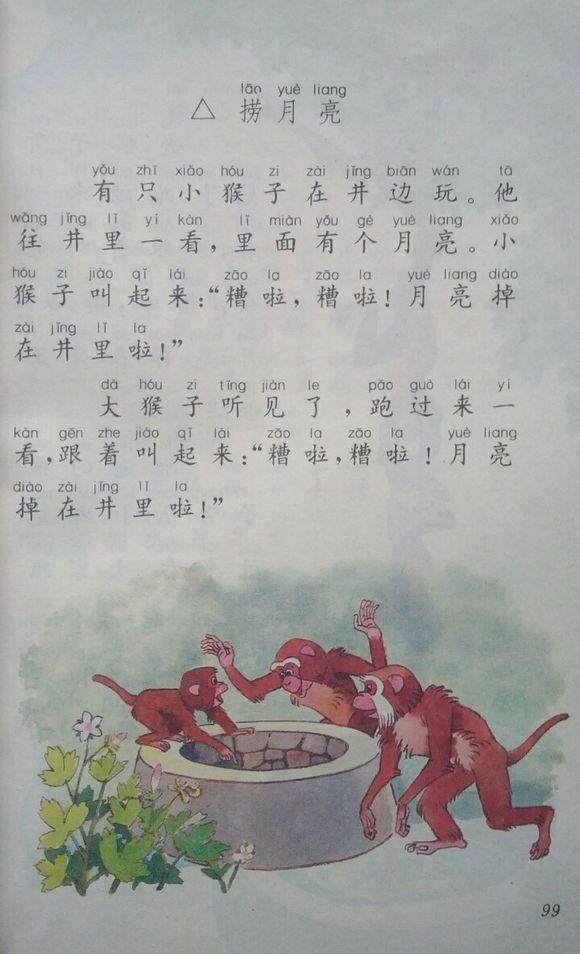 lāo yuè liang
△ 捞月亮
yǒu zhī xiǎo hóu zi zài jǐng biān wán tā
有只小猴子在井边玩。他
wǎng jǐng lǐ yí kàn lǐ miàn yǒu gè yuè liang xiǎo
往井里一看,里面有个月亮。小
hóu zi jiào qǐ lái zāo la zāo la yuè liang diào
猴子叫起来:“糟啦,糟啦!月亮掉
zài jǐng lǐ la
在井里啦!”
dà hóu zi tīng jiàn le pǎo guò lái yí
大猴子听见了,跑过来一
kàn gēn zhe jiào qǐ lái zāo la zāo la yuè liang
看,跟着叫起来:“糟啦,糟啦!月亮
diào zài jǐng lǐ la
掉在井里啦!”
99